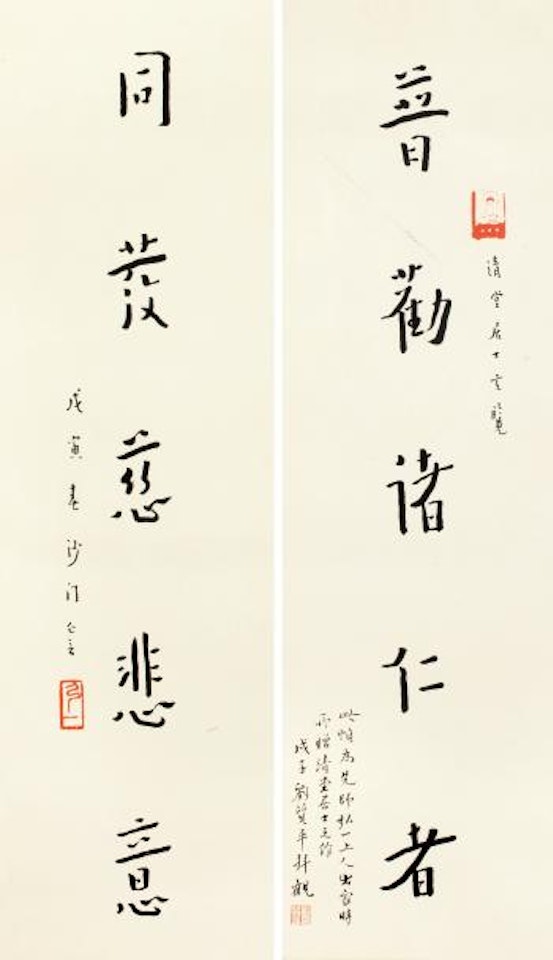 清堂居士玄覽
普勸諸仁者
此幀為先師弘一上人出家時
所贈清堂居士之作
戊子劉質平拜觀
同發慈悲意
戊寅春沙門
弘一